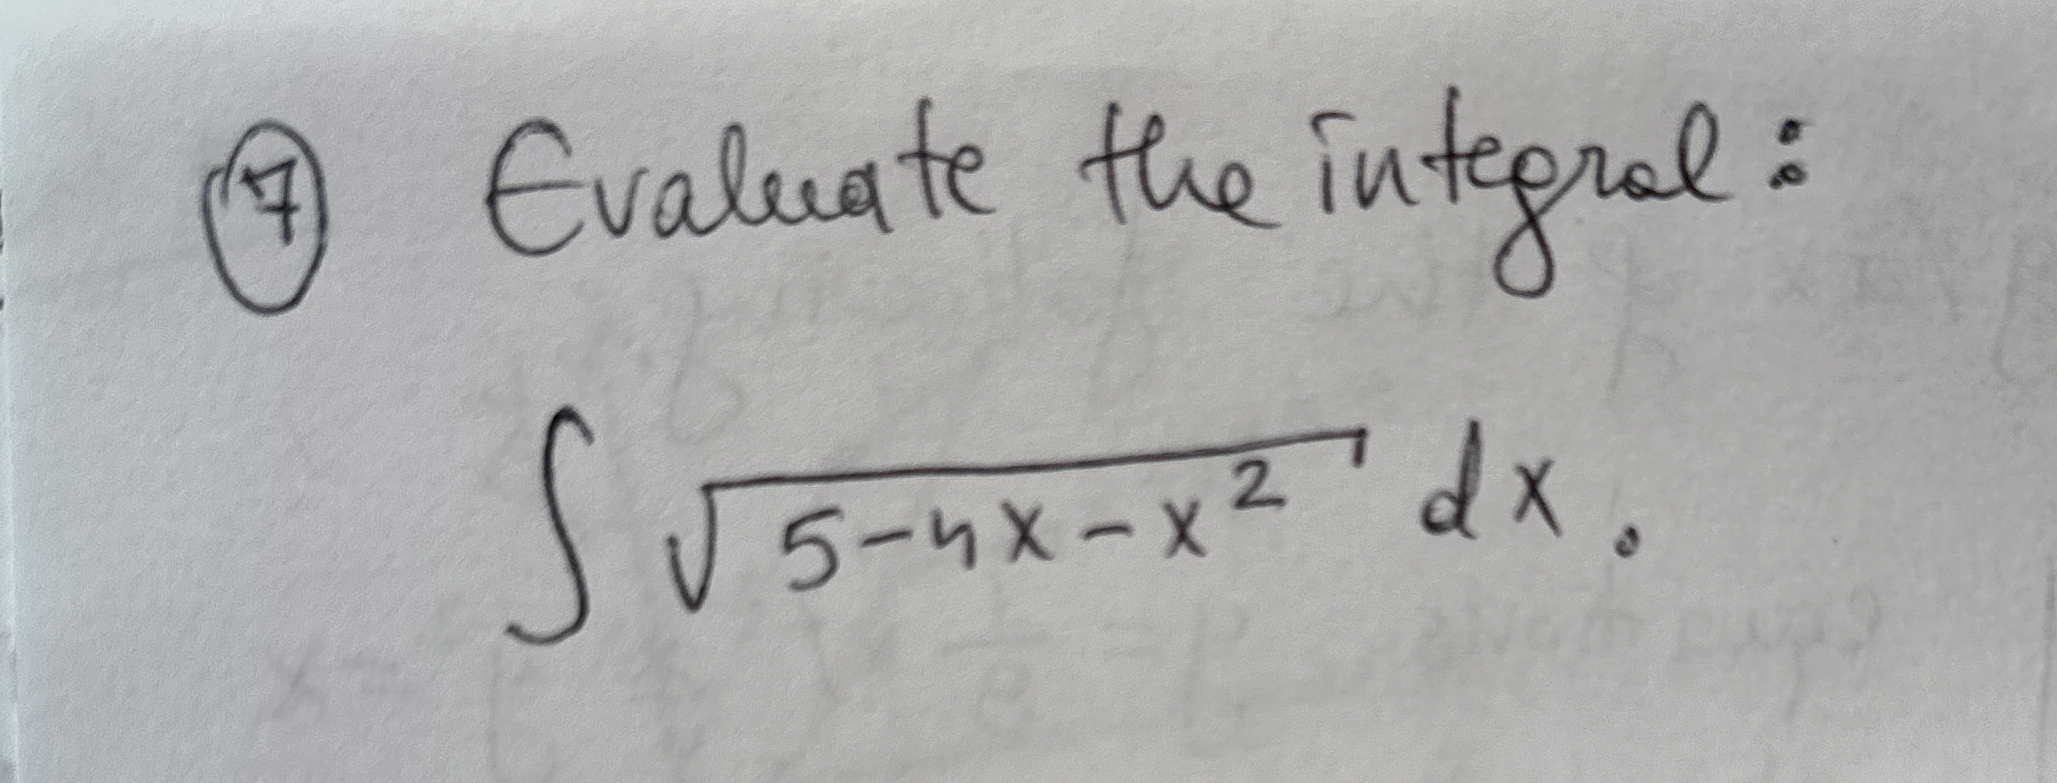 7 Evaluate the integral:
∫ √(5-4x-x²) dx.